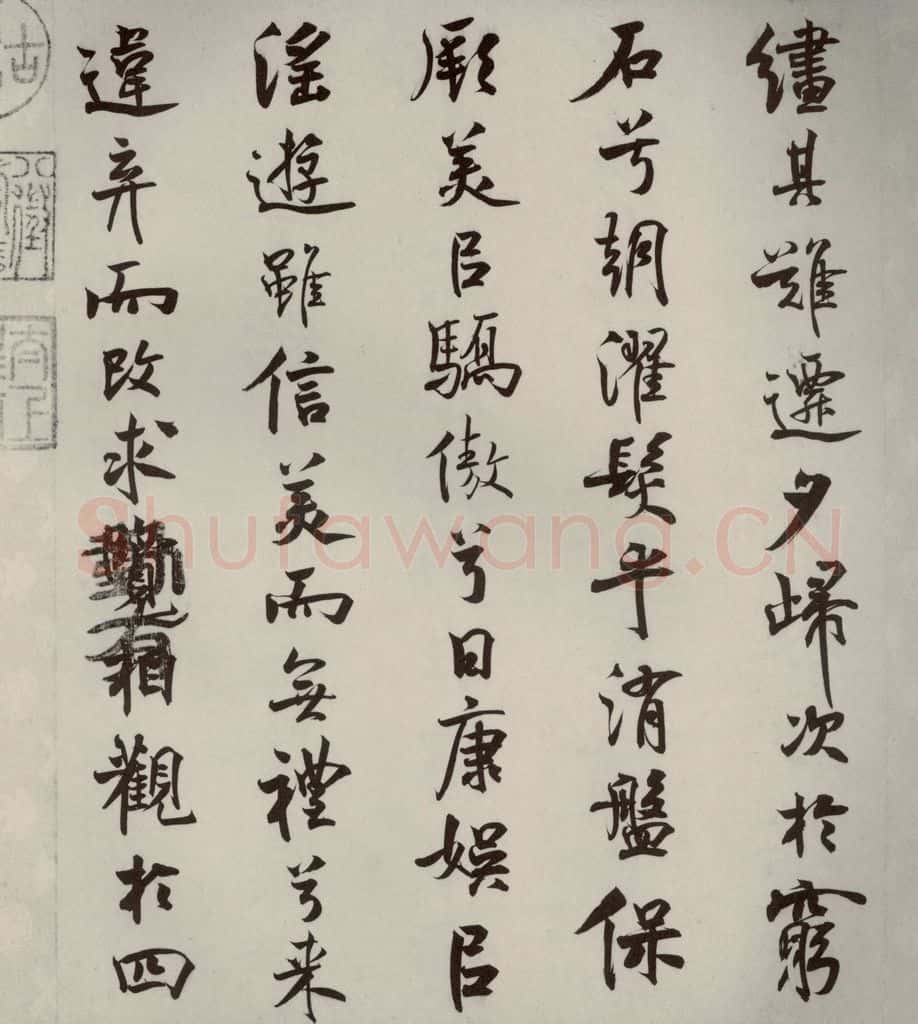 繣其難遷夕歸次於窮
石兮朝濯髮乎洧盤保
厥美㠯驕傲兮日康娛㠯
淫遊雖信美而無禮兮来
違弃而改求覽相觀於四
Shufawang.CN